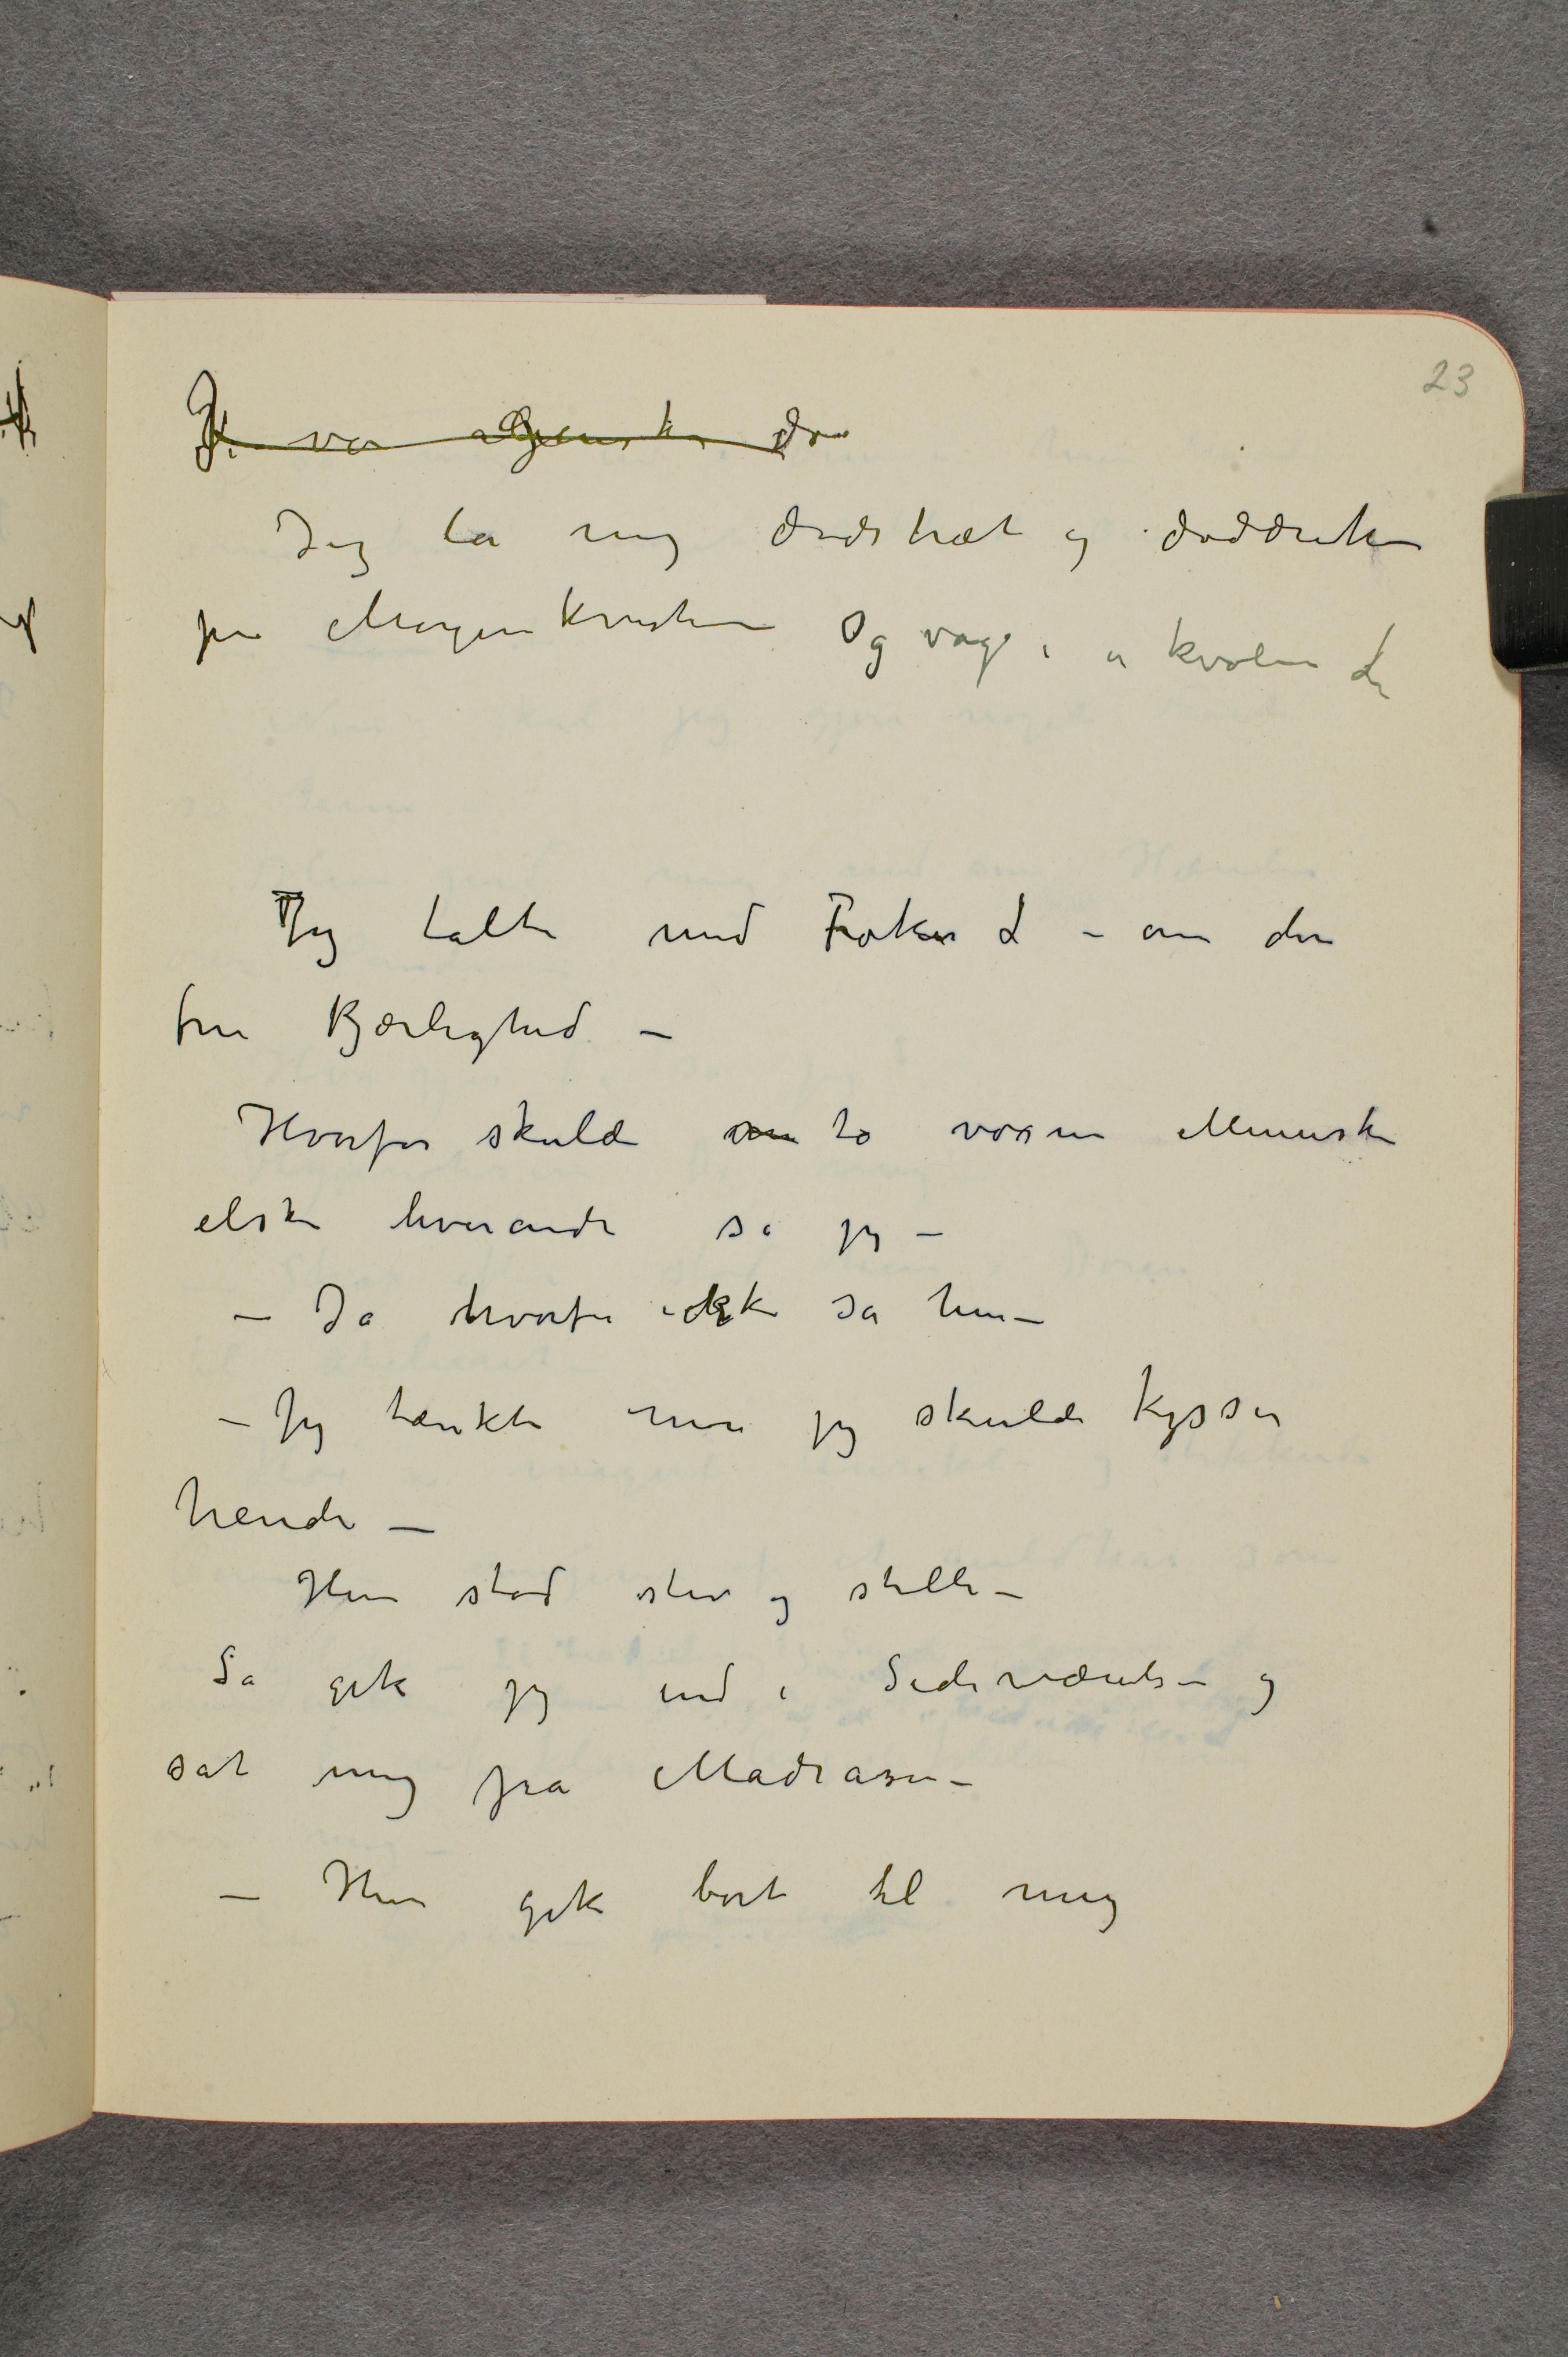 23
Jeg la mig dødstræt og døddrukken
på Morgenkvisten Og vog i
Jeg talte med Frøken L – om den
frie Kjærlighed –
Hvorfor skulde to voxne Mennesker
elske hverandre sa jeg –
– Ja hvorfor ikke sa hun –
– Jeg tænkte nu jeg skulde kysse
hende –
Hun stod stiv og stille –
Så gik jeg ind i Sideværelset og
sat mig på Madrasen –
– Hun gik bort til mig